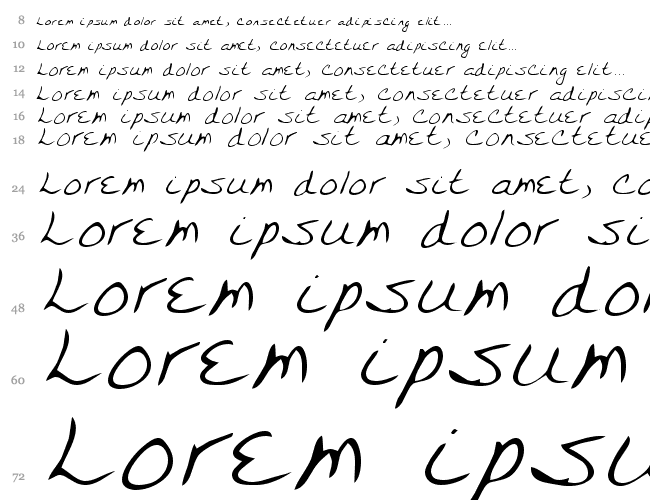 8 Lorem ipsum dolor sit amet, consectetuer adipiscing elit...
10 Lorem ipsum dolor sit amet, consectetuer adipiscing elit...
12 Lorem ipsum dolor sit amet, consectetuer adipiscing elit...
14 Lorem ipsum dolor sit amet, consectetuer adipisci
16 Lorem ipsum dolor sit amet, consectetuer adip
18 Lorem ipsum dolor sit amet, consectetue
24 Lorem ipsum dolor sit amet, co
36 Lorem ipsum dolor si
48 Lorem ipsum dol
60 Lorem ipsum
72 Lorem ipsu